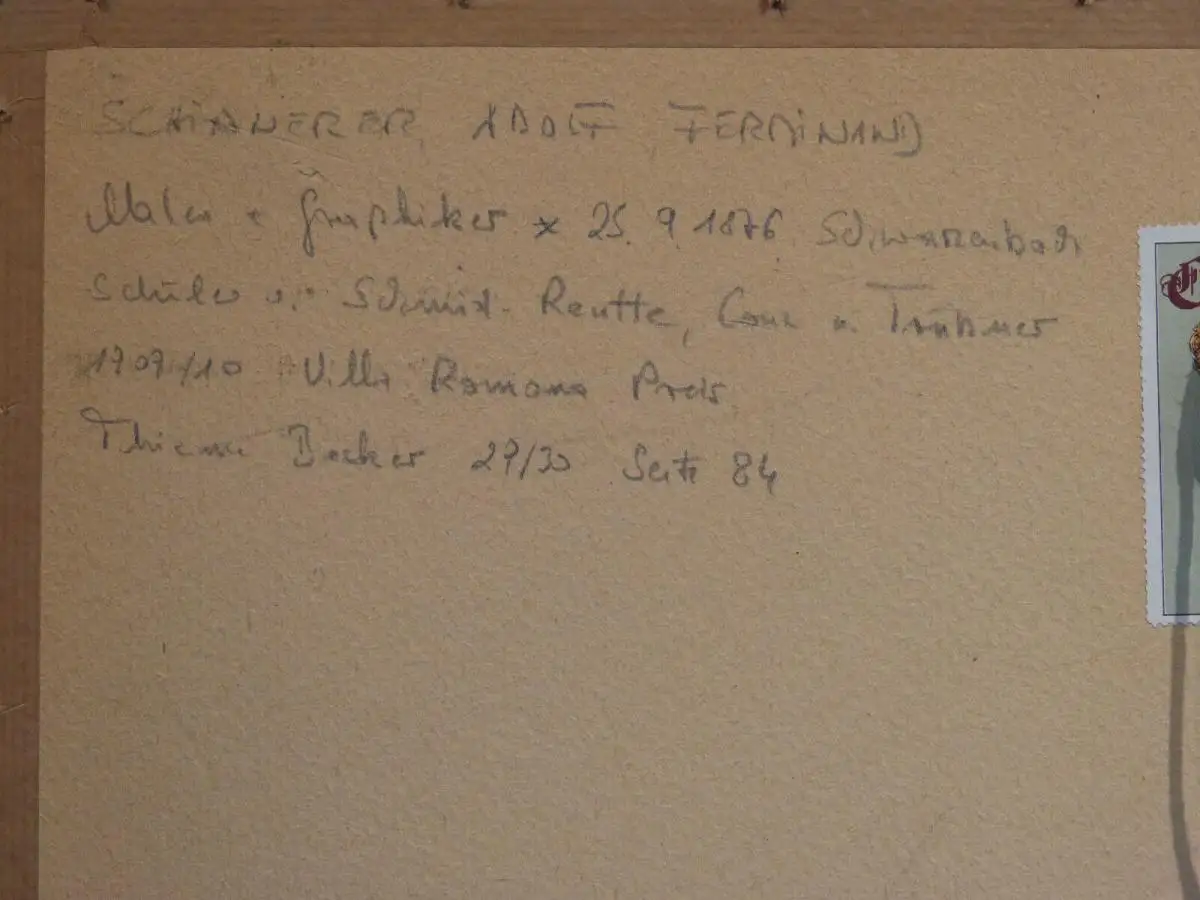 SCHINNERER, ADOLF FERDINAND
Maler + Graphiker * 25. 9. 1876 Schwarzenbach
Schüler v. Schmid-Reutte, Conz u. Trübner
1909/10 Villa Romana Preis
Thieme Becker 29/30 Seite 84